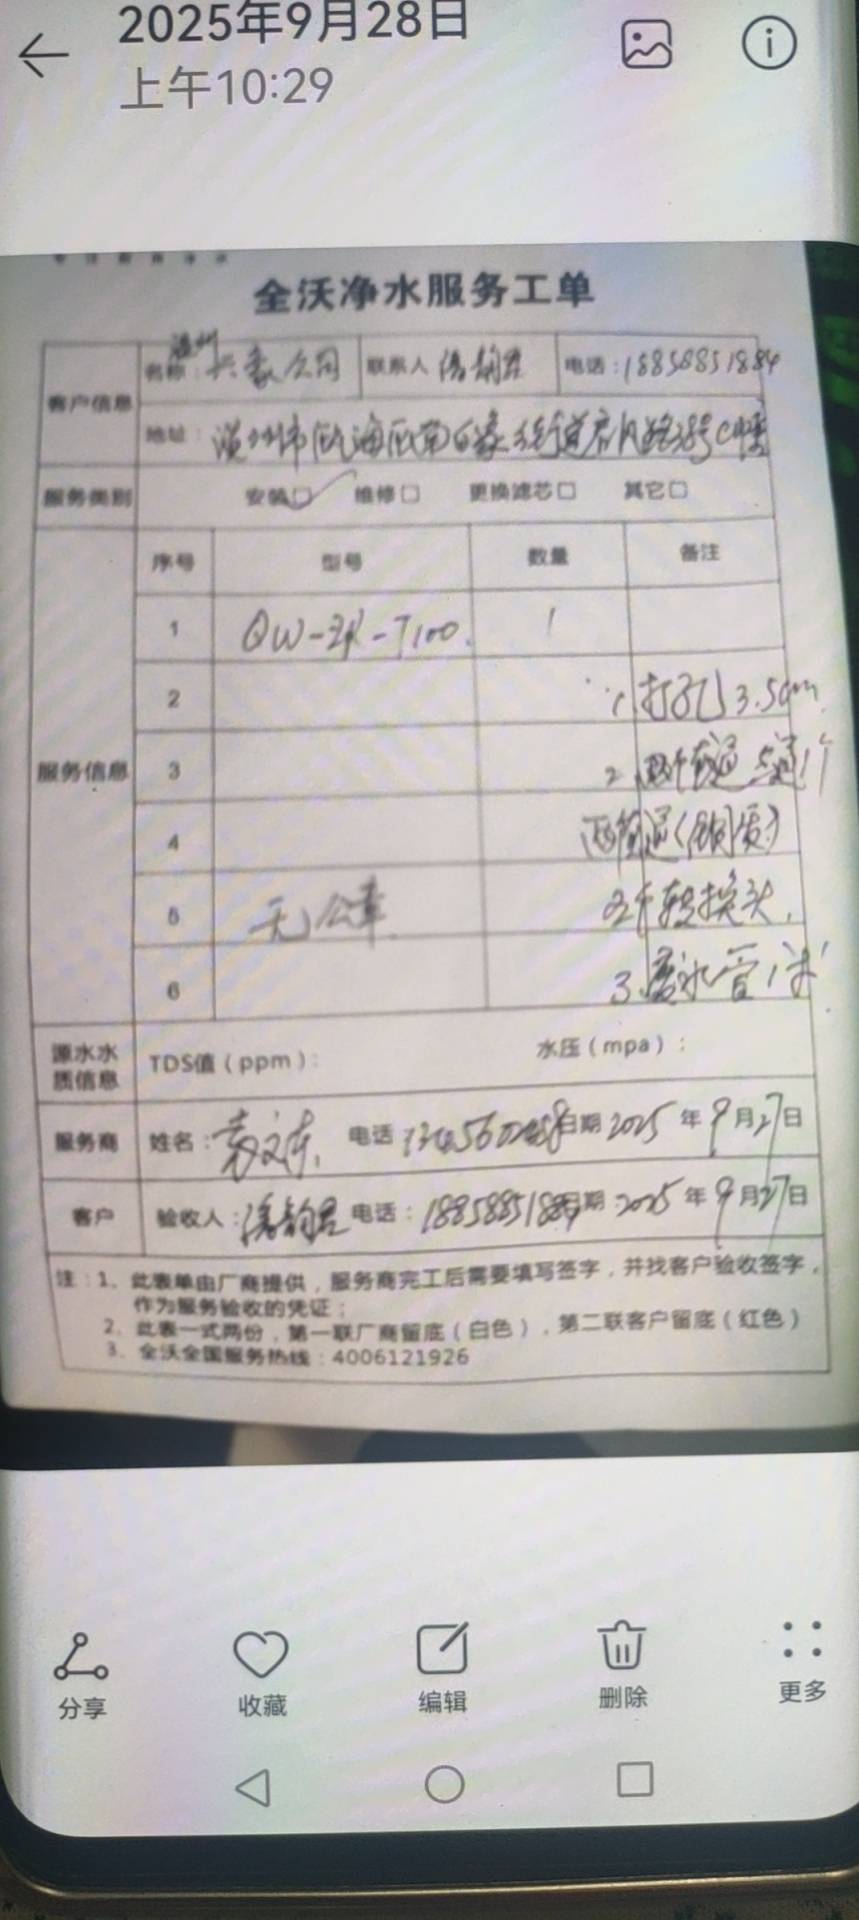 2025年9月28日
上午10:29
全沃净水服务工单
客户信息
温州
名称: 公司 联系人 电话:18858851884
地址: 温州市瓯海区南白象街道 路38号C幢
服务类别 安装□ 维修□ 更换滤芯□ 其它□
服务信息
序号 型号 数量 备注
1 QW- -T100. 1
2 1.打孔3.5cm
3 2. 直通 1个
4 直通(铜质)
5 无公章 2个转换头.
6 3.废水管1米
源水水质信息 TDS值(ppm): 水压(mpa):
服务商 姓名: 电话 日期 2025年9月27日
客户 验收人: 电话:18858851884 日期:2025年9月27日
注:1、此表单由厂商提供,服务商完工后需要填写签字,并找客户验收签字,
作为服务验收的凭证;
2、此表一式两份,第一联厂商留底(白色),第二联客户留底(红色)
3、全沃全国服务热线:4006121926
分享 收藏 编辑 删除 更多